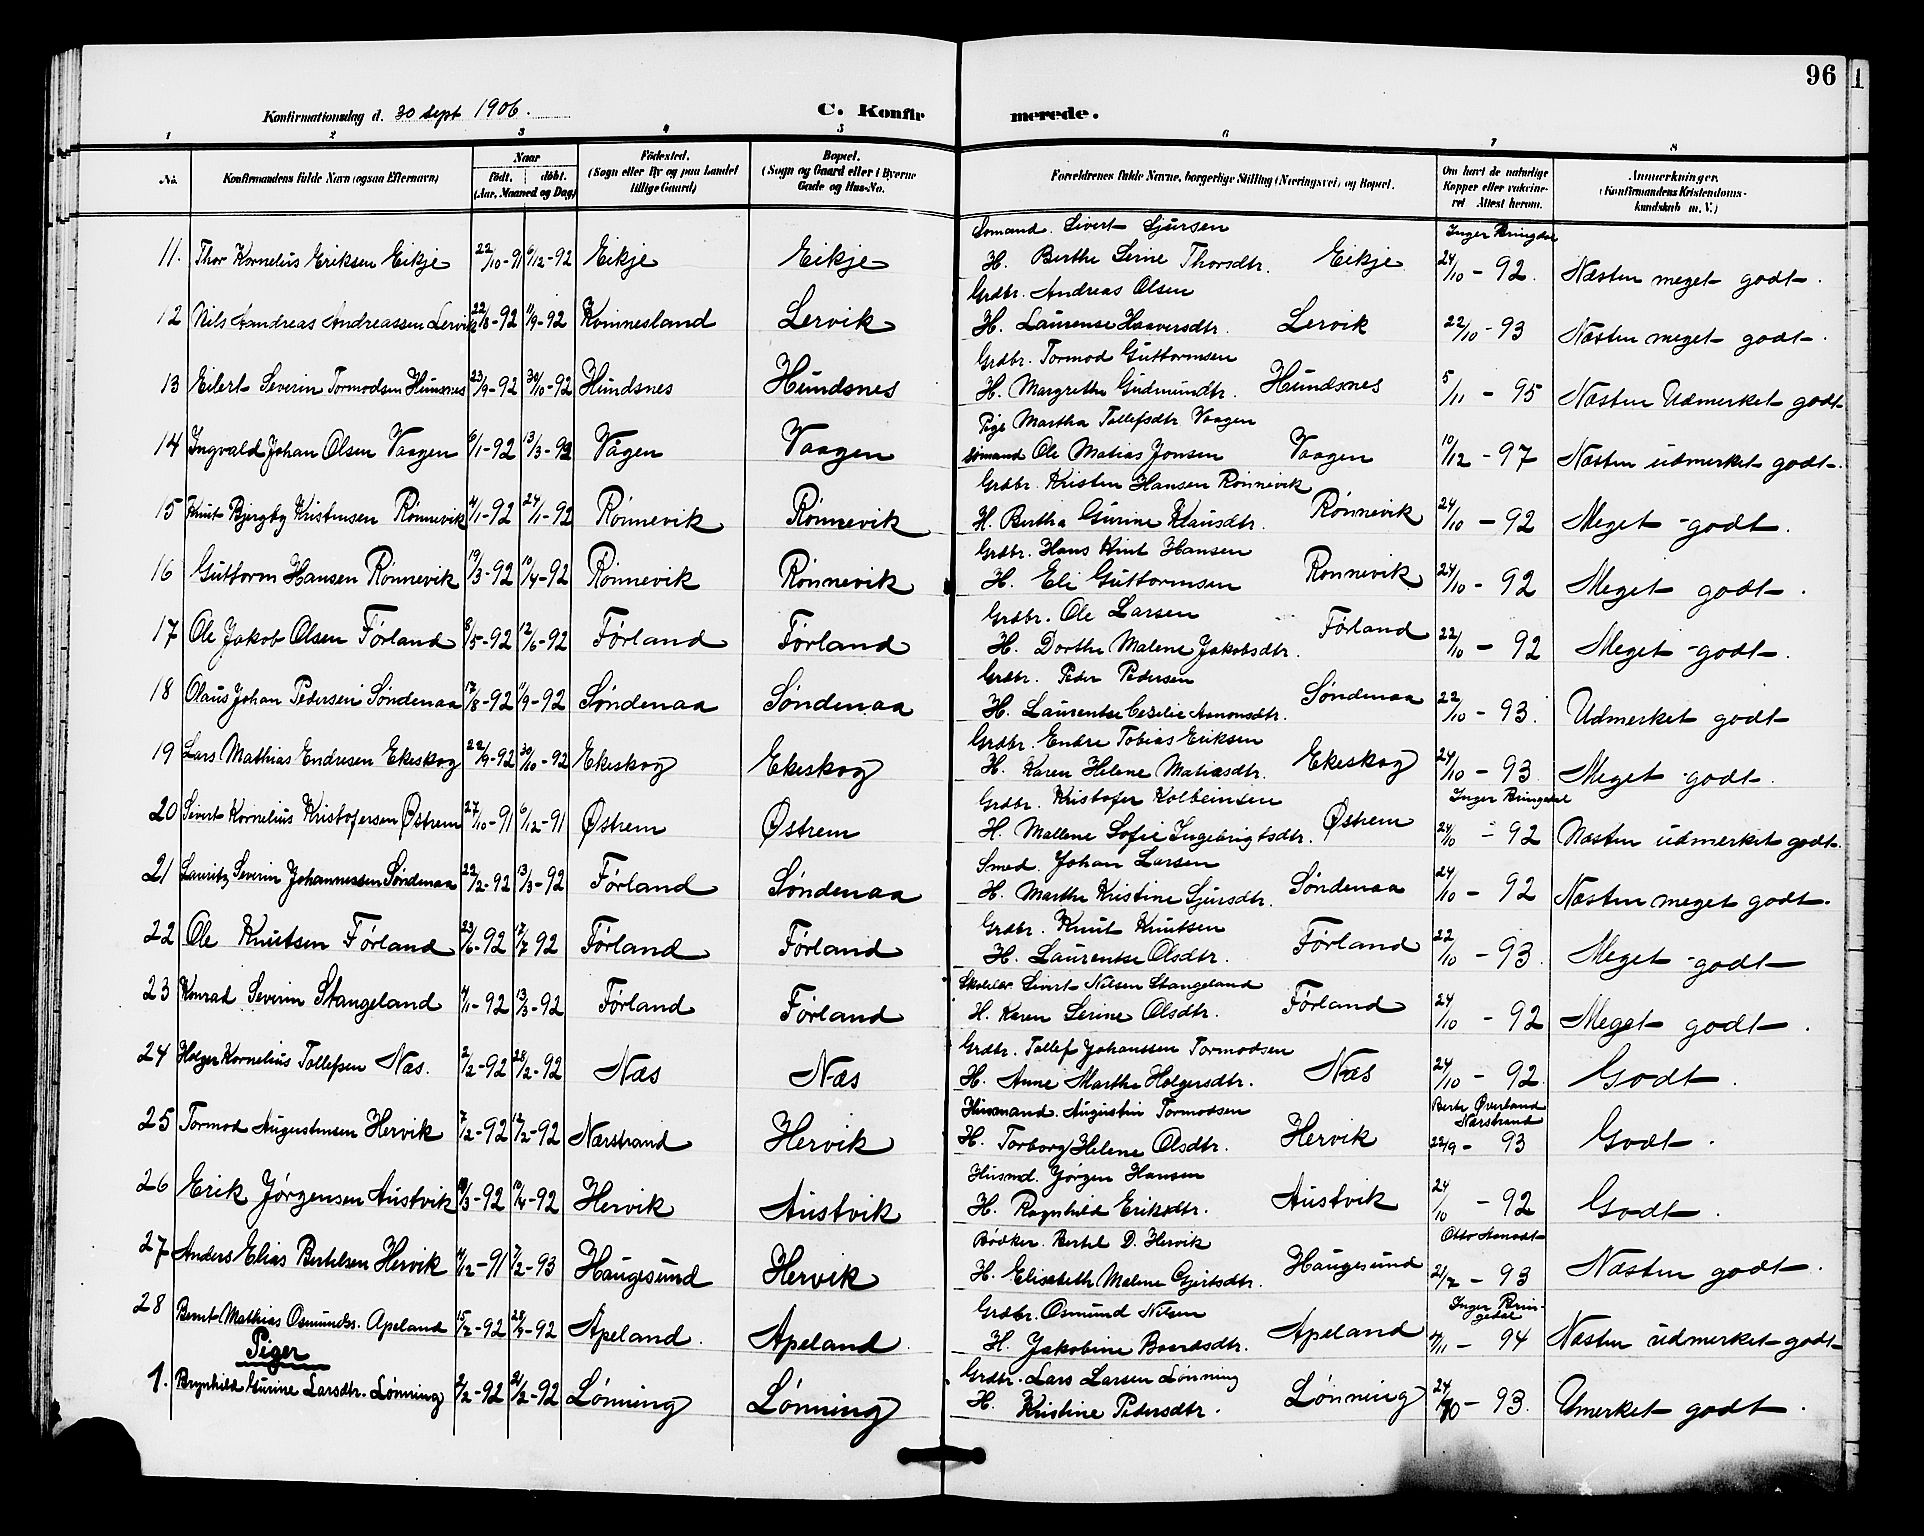 96
Konfirmationsdag d. 30 sept 1906.
C. Konfirmerede.
1 2 3 4 5 6 7 8
No. Konfirmandens fulde Navn (ogsaa Efternavn) Naar født. døbt. (Aar, Maaned og Dag) Fødested. (Sogn eller By og paa Landet tillige Gaard) Bopæl. (Sogn og Gaard eller i Byerne Gade og Hus-No. Forældrenes fulde Navne, borgerlige Stilling (Næringsvei) og Bopæl. Om havt de naturlige Kopper eller vakcineret Attest herom. Anmærkninger. (Konfirmandens Kristendomskundskab m. V.)
Sømand. Sivert Sjursen Inger Ringdal
11. Thor Kornelius Eriksen Eikje 22/10-91 6/12-92 Eikje Eikje H. Berthe Serine Thorsdtr. Eikje 24/10-92. Næsten meget godt.
Grdbr. Andreas Olsen
12 Nils Aandreas Andreassen Lervik 22/8-92 11/9-92 Kvinnesland Lervik H. Laurense Haaversdtr. Lervik 22/10-93 Næsten meget godt.
Grdbr. Tormod Guttormsen
13 Eilert Severin Tormodsen Hunsnes 23/9-92 30/10-92 Hundsnes Hundsnes H. Margrethe Gudmundtr. Hundsnes 5/11-95 Næsten Udmerket godt
Pige Martha Tollefsdtr Vaagen
14 Ingvald Johan Olsen Vaagen 6/1-92 13/3-92 Vågen Vaagen sømand Ole Matias Jonsen Vaagen 10/12-97 Næsten udmerket godt.
Grdbr. Kristen Hansen Rønnevik
15 Knut Bjergby Kristensen Rønnevik 4/1-92 24/1-92 Rønnevik Rønnevik H. Bertha Gurine Klausdtr. Rønnevik 24/10-92 Meget godt.
Grdbr. Hans Knut Hansen
16 Guttorm Hansen Rønnevik 19/3-92 10/4-92 Rønnevik Rønnevik H. Eli Guttormsen Rønnevik 24/10-92 Meget godt.
Grdbr. Ole Larsen
17 Ole Jakob Olsen Førland 8/5-92 12/6-92 Førland Førland H. Dorthe Malene Jakobsdtr. Førland 22/10-92 Meget godt.
Grdbr. Peder Pedersen
18 Olaus Johan Pedersen Søndenaa 17/8-92 11/9-92 Søndenaa Søndenaa H. Laurentse Cesilie Aamonsdtr. Søndenaa 22/10-93. Udmerket godt
Grdbr. Endre Tobias Eriksen
19 Lars Mathias Endresen Ekeskog 22/9-92 30/10-92 Ekeskog Ekeskog H. Karen Helene Matiasdtr. Ekeskog 24/10-93. Meget godt.
Grdbr. Kristofer Kolbeinsen Inger Ringdal
20 Sivert Kornelius Kristofersen Østrem 27/10-91 6/12-91 Østrem Østrem H. Mallene Sofie Ingebrigtsdtr. Østrem 24/10-92 Næsten udmerket godt.
Smed. Johan Larsen
21 Lauritz Severin Johannessen Søndenaa 22/2-92 13/3-92 Førland Søndenaa H. Marthe Kristine Sjursdtr. Søndenaa 24/10-92 Næsten meget godt.
Grdbr. Knut Knutsen
22 Ole Knutsen Førland 23/6-92 17/7 92 Førland Førland H. Laurentse Olsdtr. Førland 22/10-93. Meget godt
Skolelær. Sivert Nilsen Stangeland
23 Konrad Severin Stangeland 4/1-92 13/3-92 Førland Førland H. Karen Serine Olsdtr. Førland 24/10-92 Meget godt.
Grdbr. Tollef Johanssen Tormodsen
24 Holger Kornelius Tollefsen Næs. 2/2-92 28/2-92 Næs Næs H. Anne Marthe Holgersdtr. Næs 24/10-92. Godt.
Husmand. Augustin Tormodsen Berte Øverland Nærstrand
25 Tormod Augustensen Hervik 7/2-92 12/2-92 Nærstrand Hervik H. Torborg Helene Olsdtr. Hervik 22/9-93 Godt.
Husmd. Jørgen Hansen
26 Erik Jørgensen Austvik 10/3-92 10/4-92 Hervik Austvik H. Ragnhild Eriksdtr. Austvik 24/10-92 Godt.
Bødker. Bertel D. Hervik Otto
27 Anders Elias Bertelsen Hervik 4/12-91 7/2-93 Haugesund Hervik H. Elisabeth Malene Gjertsdtr. Haugesund 21/2-93 Næsten godt.
Grdbr. Osmund Nilsen Inger Ringedal
28 Bernt Mathias Osmundss. Apeland 15/2-92 28/2-92 Apeland. Apeland. H. Jakobine Baardsdtr. Apeland 4/11-94 Næsten udmerket godt
Piger
Grdbr. Lars Larsen Lønning
1. Brynhild Gurine Larsdtr. Lønning 2/2-92 21/2-92 Lønning Lønning H. Kristine Pedersdtr. Lønning 24/10-93. Umerket godt.